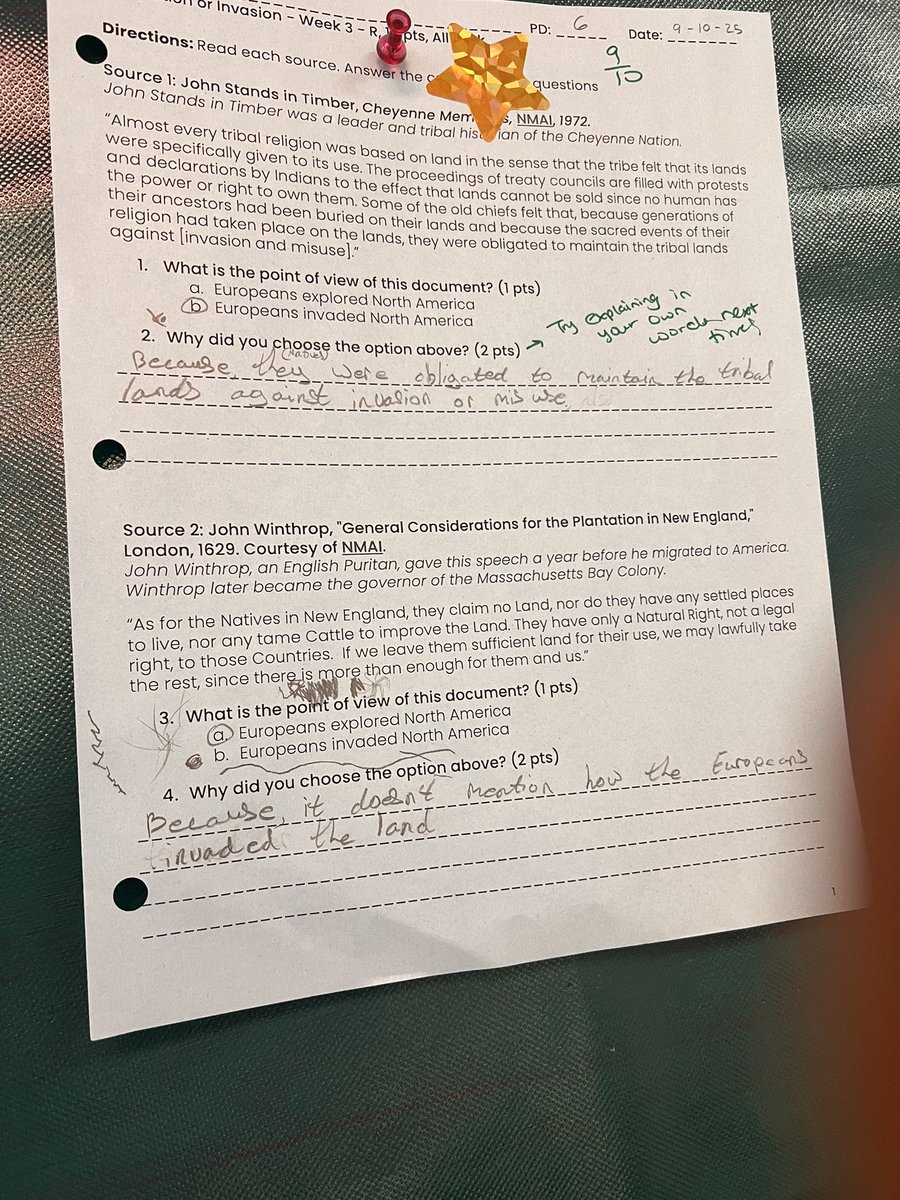 on or Invasion - Week 3 - R, pts, All PD: 6 Date: 9-10-25
Directions: Read each source. Answer the questions
9/10
Source 1: John Stands in Timber, Cheyenne NMAI, 1972.
John Stands in Timber was a leader and tribal of the Cheyenne Nation.
“Almost every tribal religion was based on land in the sense that the tribe felt that its lands
were specifically given to its use. The proceedings of treaty councils are filled with protests
and declarations by Indians to the effect that lands cannot be sold since no human has
the power or right to own them. Some of the old chiefs felt that, because generations of
their ancestors had been buried on their lands and because the sacred events of their
religion had taken place on the lands, they were obligated to maintain the tribal lands
against [invasion and misuse].”
1. What is the point of view of this document? (1 pts)
a. Europeans explored North America
b. Europeans invaded North America
2. Why did you choose the option above? (2 pts) → Try explaining in
your own
words next
time!
(Natives)
Because, they were obligated to maintain the tribal
lands against invasion or misuse.
Source 2: John Winthrop, "General Considerations for the Plantation in New England,"
London, 1629. Courtesy of NMAI.
John Winthrop, an English Puritan, gave this speech a year before he migrated to America.
Winthrop later became the governor of the Massachusetts Bay Colony.
“As for the Natives in New England, they claim no Land, nor do they have any settled places
to live, nor any tame Cattle to improve the Land. They have only a Natural Right, not a legal
right, to those Countries. If we leave them sufficient land for their use, we may lawfully take
the rest, since there is more than enough for them and us.”
3. What is the point of view of this document? (1 pts)
a. Europeans explored North America
b. Europeans invaded North America
4. Why did you choose the option above? (2 pts)
Because, it doesn't mention how the Europeans
invaded the land
1